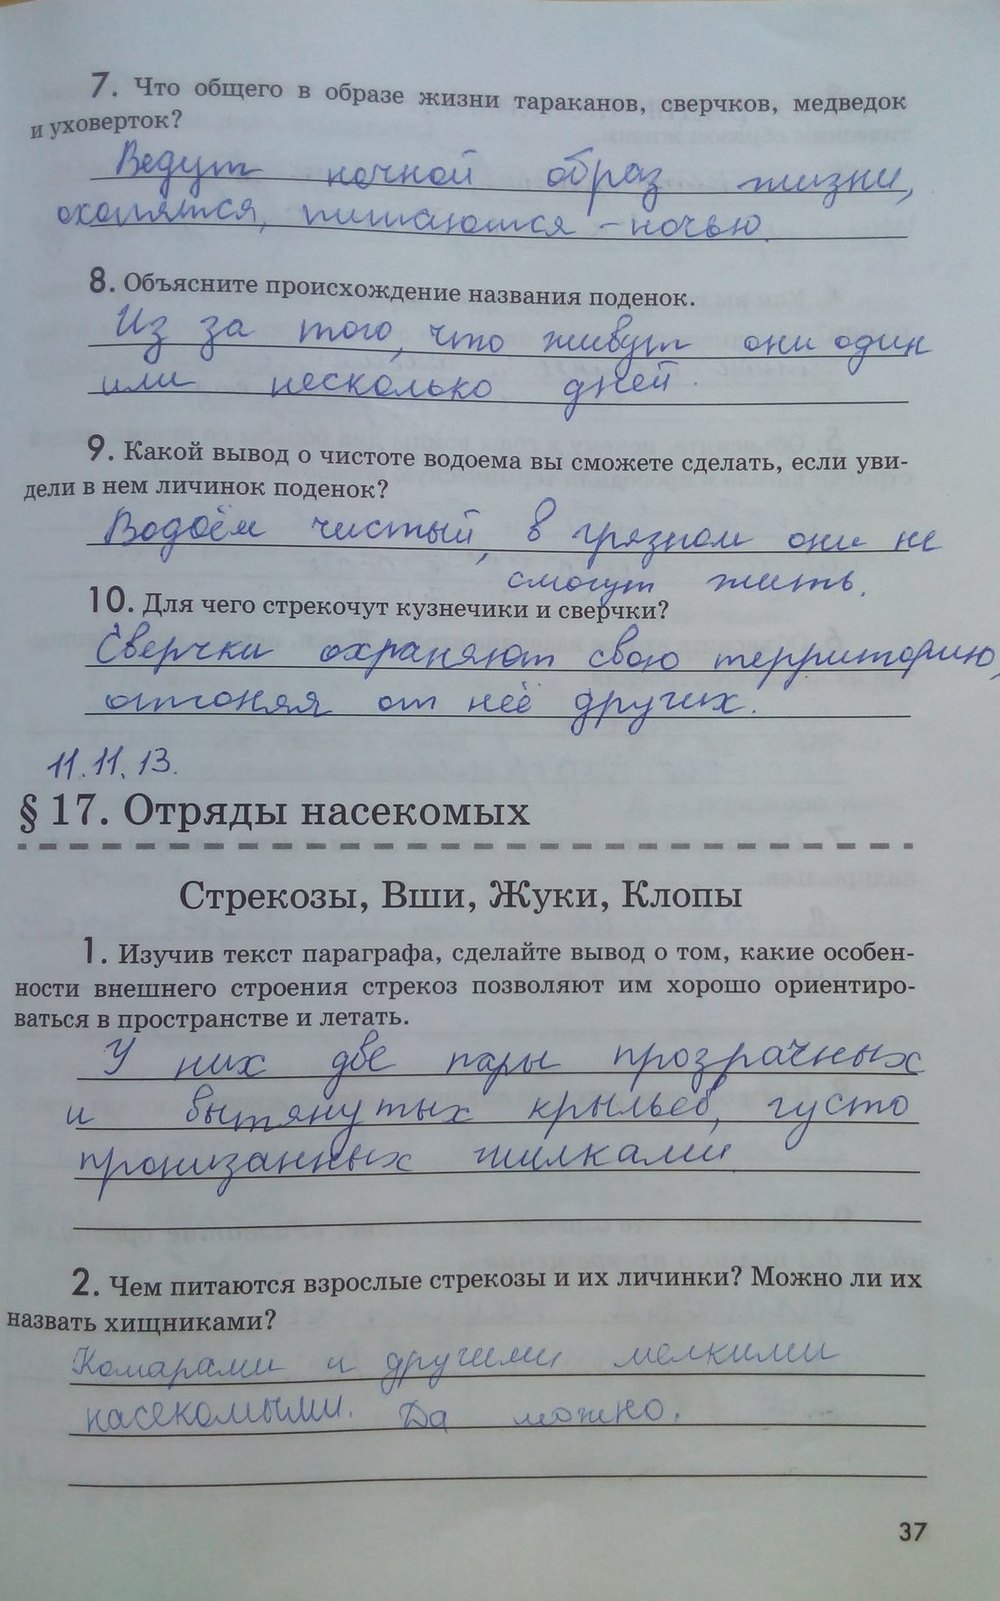 7. Что общего в образе жизни тараканов, сверчков, медведок
и уховерток?
Ведут ночной образ жизни,
охотятся, питаются - ночью.
8. Объясните происхождение названия поденок.
Из за того, что живут они один
или несколько дней.
9. Какой вывод о чистоте водоема вы сможете сделать, если уви-
дели в нем личинок поденок?
Водоём чистый, в грязном они не
смогут жить.
10. Для чего стрекочут кузнечики и сверчки?
Сверчки охраняют свою территорию,
отгоняя от неё других.
11.11.13.
§ 17. Отряды насекомых
Стрекозы, Вши, Жуки, Клопы
1. Изучив текст параграфа, сделайте вывод о том, какие особен-
ности внешнего строения стрекоз позволяют им хорошо ориентиро-
ваться в пространстве и летать.
У них две пары прозрачных
и вытянутых крыльев, густо
пронизанных жилками
2. Чем питаются взрослые стрекозы и их личинки? Можно ли их
назвать хищниками?
Комарами и другими мелкими
насекомыми. Да можно.
37